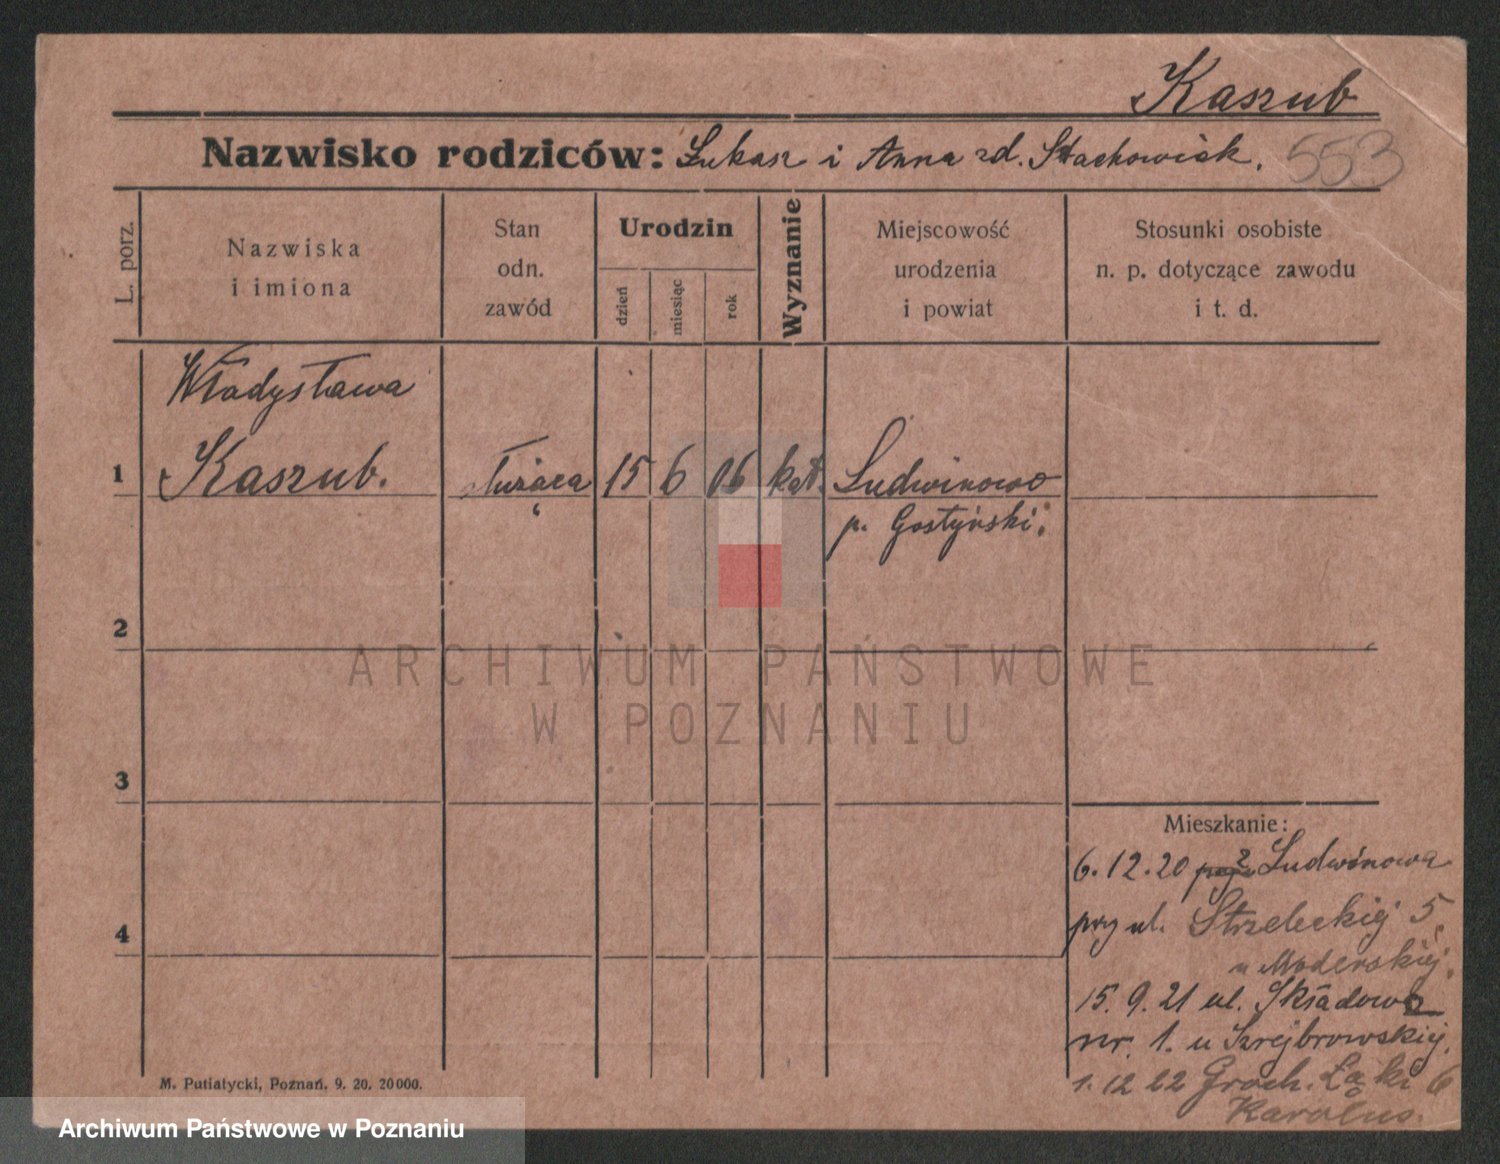 Kaszub
Nazwisko rodziców: Łukasz i Anna zd. Stachowiak.
553
L. porz.
Nazwiska
i imiona
Stan
odn.
zawód
Urodzin
dzień
miesiąc
rok
Wyznanie
Miejscowość
urodzenia
i powiat
Stosunki osobiste
n. p. dotyczące zawodu
i t. d.
Władysława
1 Kaszub. służąca 15 6 06 kat. Ludwinowo
p. Gostyński.
2
3
4
Mieszkanie:
6.12.20 z Ludwinowa
przy ul. Strzeleckiej 5
u Moderskiej.
15.9.21 ul. Składowa
nr. 1. u Szrejbrowskiej.
1.12 22 Groch. Łąki 6
Karolus.
M. Putiatycki, Poznań. 9. 20. 20000.
ARCHIWUM PAŃSTWOWE
W POZNANIU
Archiwum Państwowe w Poznaniu